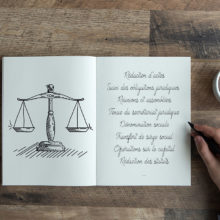 Rédaction d'actes
Suivi des obligations juridiques
Réunions et assemblées
Tenue du secrétariat juridique
Dénomination sociale
Transfert de siège social
Opérations sur le capital
Rédaction des statuts